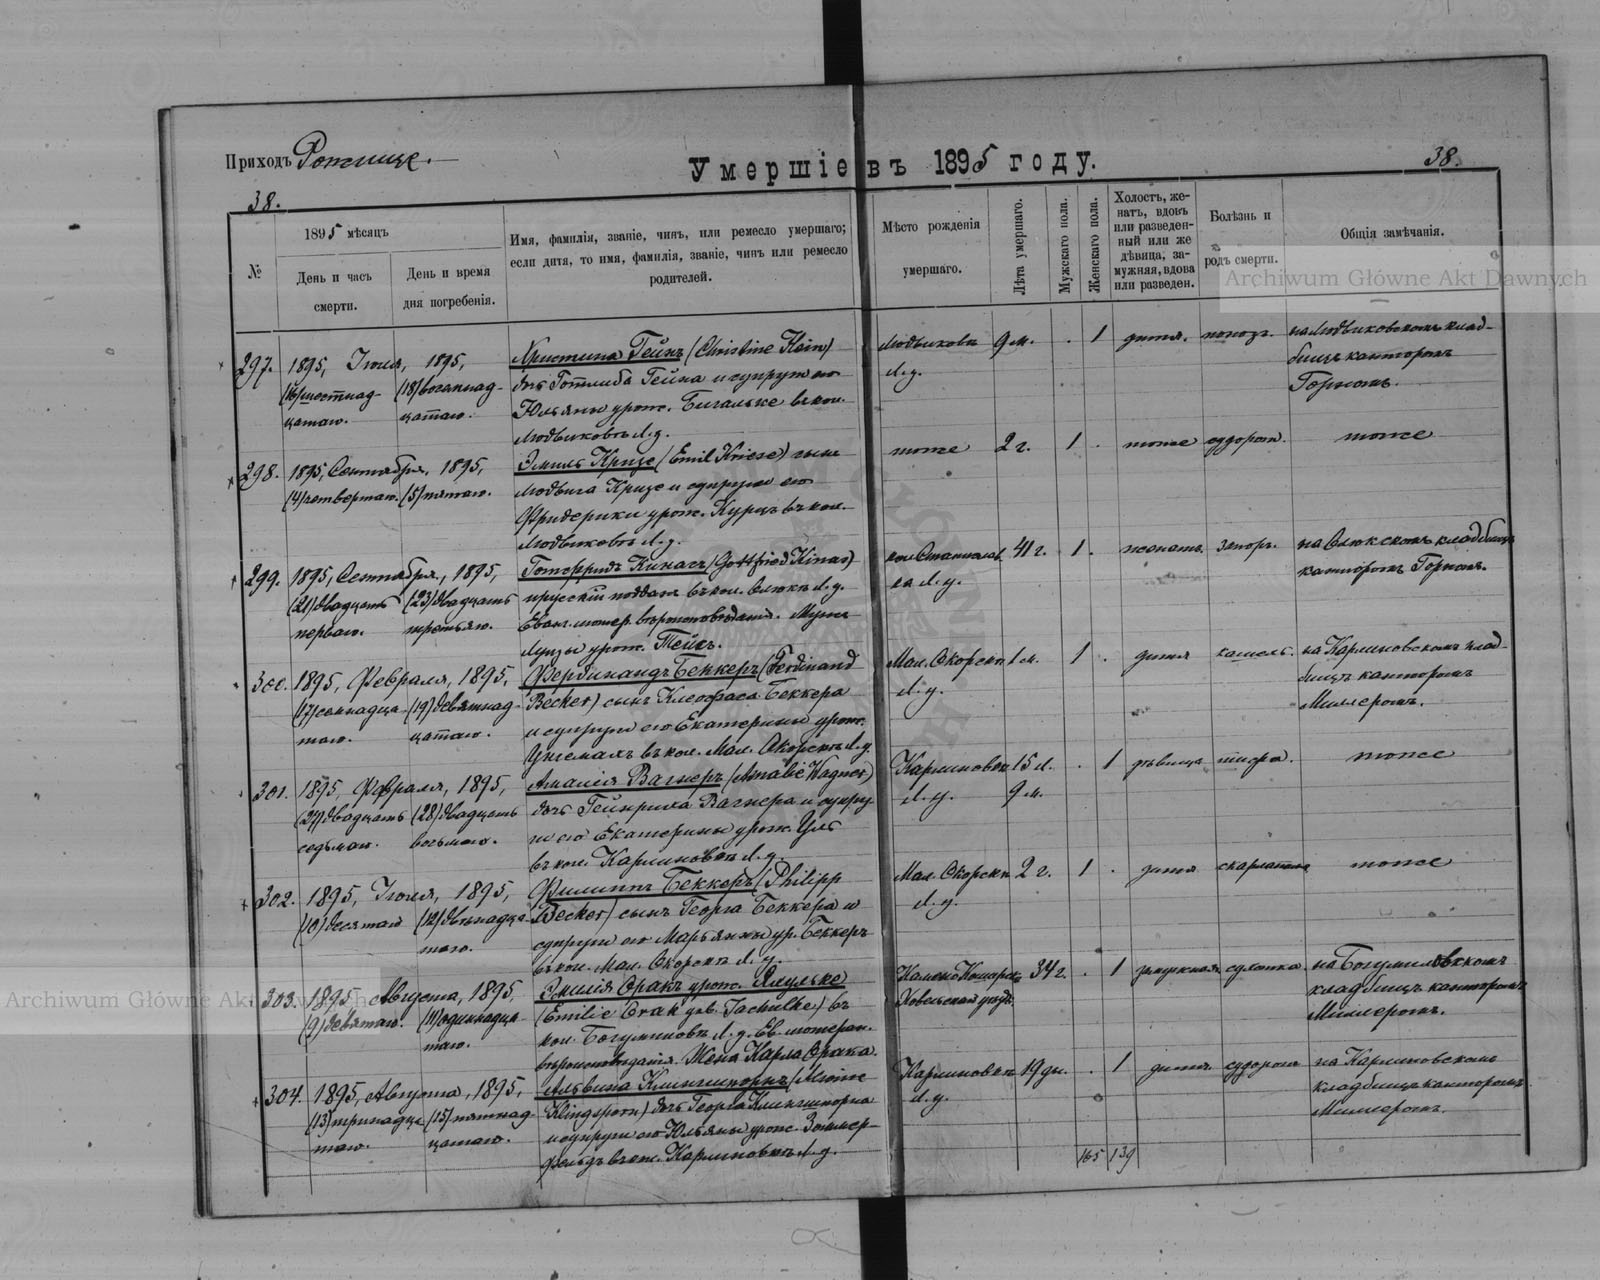 Приходъ Рожище.
Умершіе въ 1895 году.
38.
38.
№
1895 мѣсяцъ
День и часъ смерти.
День и время дня погребенія.
Имя, фамилія, званіе, чинъ, или ремесло умершаго; если дитя, то имя, фамилія, званіе, чинъ или ремесло родителей.
Мѣсто рожденія умершаго.
Лѣта умершаго.
Мужскаго пола.
Женскаго пола.
Холостъ, женатъ, вдовъ или разведенный или же дѣвица, замужняя, вдова или разведен.
Болѣзнь и родъ смерти.
Общія замѣчанія.
297.
1895, Іюля, 1895,
(16) шестнад-
цатаго.
(18) восемнад-
цатаго.
Христина Гейнъ (Christine Hein)
дочь Готлиба Гейна и супруги его
Юльяны урож. в кол.
Людвиковъ Л.у.
Людвиковъ
Л.у.
9 м. . 1 дитя.
на Людвиковскомъ клад-
бищѣ канторомъ
Горномъ.
298.
1895, Сентября, 1895,
(4) четвертаго. (5) пятаго.
Эмиль Кризе (Emil Kriese) сынъ
Людвига Кризе и супруги его
Фридерики урож. Курцъ въ кол.
Людвиковъ Л.у.
тоже 2 г. 1 . тоже судорож. тоже
299.
1895, Сентября, 1895,
(21) двадцать
перваго.
(23) двадцать
третьяго.
Готфридъ Кинасъ (Gottfried Kinas)
прусскій поддан. въ кол. Л.у.
Еван. лютер. вѣроисповѣданія. Мужъ
Луизы урож. Тейсъ.
кол. Станислав
ка Л.у.
41 г. 1 . женатъ. запоръ.
кладбищѣ
канторомъ Горномъ.
300.
1895, Февраля, 1895,
(17) семнадца-
таго.
(19) девятнад-
цатаго.
Фердинандъ Беккеръ (Ferdinand
Becker) сынъ Клеофаса Беккера
и супруги его Екатерины урож.
въ кол. Мал. Окорскъ Л.у.
Мал. Окорскъ
Л.у.
1 м. 1 . дитя кашель.
на Карлиновскомъ клад-
бищѣ канторомъ
Миллеромъ.
301.
1895, Февраля, 1895,
(27) двадцать
седьмаго.
(28) двадцать
восьмаго.
Амалія Вагнеръ (Amalie Wagner)
дочь Гейнриха Вагнера и супру-
ги его Екатерины урож. Уль
въ кол. Карлиновкѣ Л.у.
Карлиновкѣ
Л.у.
15 л.
9 м.
. 1 дѣвица тоже
302.
1895, Іюля, 1895,
(10) десятаго
(12) двѣнадца-
таго.
Филиппъ Беккеръ (Philipp
Becker) сынъ Георга Беккера и
супруги его Марьянны ур. Беккеръ
въ кол. Мал. Окорскъ Л.у.
Мал. Окорскъ
Л.у.
2 г. 1 . дитя скарлатина тоже
303.
1895, Августа, 1895,
(9) девятаго.
(11) одиннадца-
таго.
Эмилія Сракъ урож. Яхульке
(Emilie Srak geb. Jachulke) въ
кол. Богумиловъ Л.у. Ев. лютеран.
вѣроисповѣданія. Жена Карла Срака.
Ковельскаго уѣзда
34 г. . 1 замужняя сухотка.
на Богумиловскомъ
кладбищѣ канторомъ
Миллеромъ.
304.
1895, Августа, 1895,
(13) тринадца-
таго.
(15) пятнад-
цатаго.
Альвина Клингшпорнъ
Klingsporn) дочь Георга Клингшпорна
и супруги его Юльяны урож. Зоммер-
фельдъ въ кол. Карлиновкѣ Л.у.
Карлиновкѣ
Л.у.
19 дн. . 1 дитя. судороги
на Карлиновскомъ
кладбищѣ канторомъ
Миллеромъ.
165 139
Archiwum Główne Akt Dawnych
Archiwum Główne Akt Dawnych